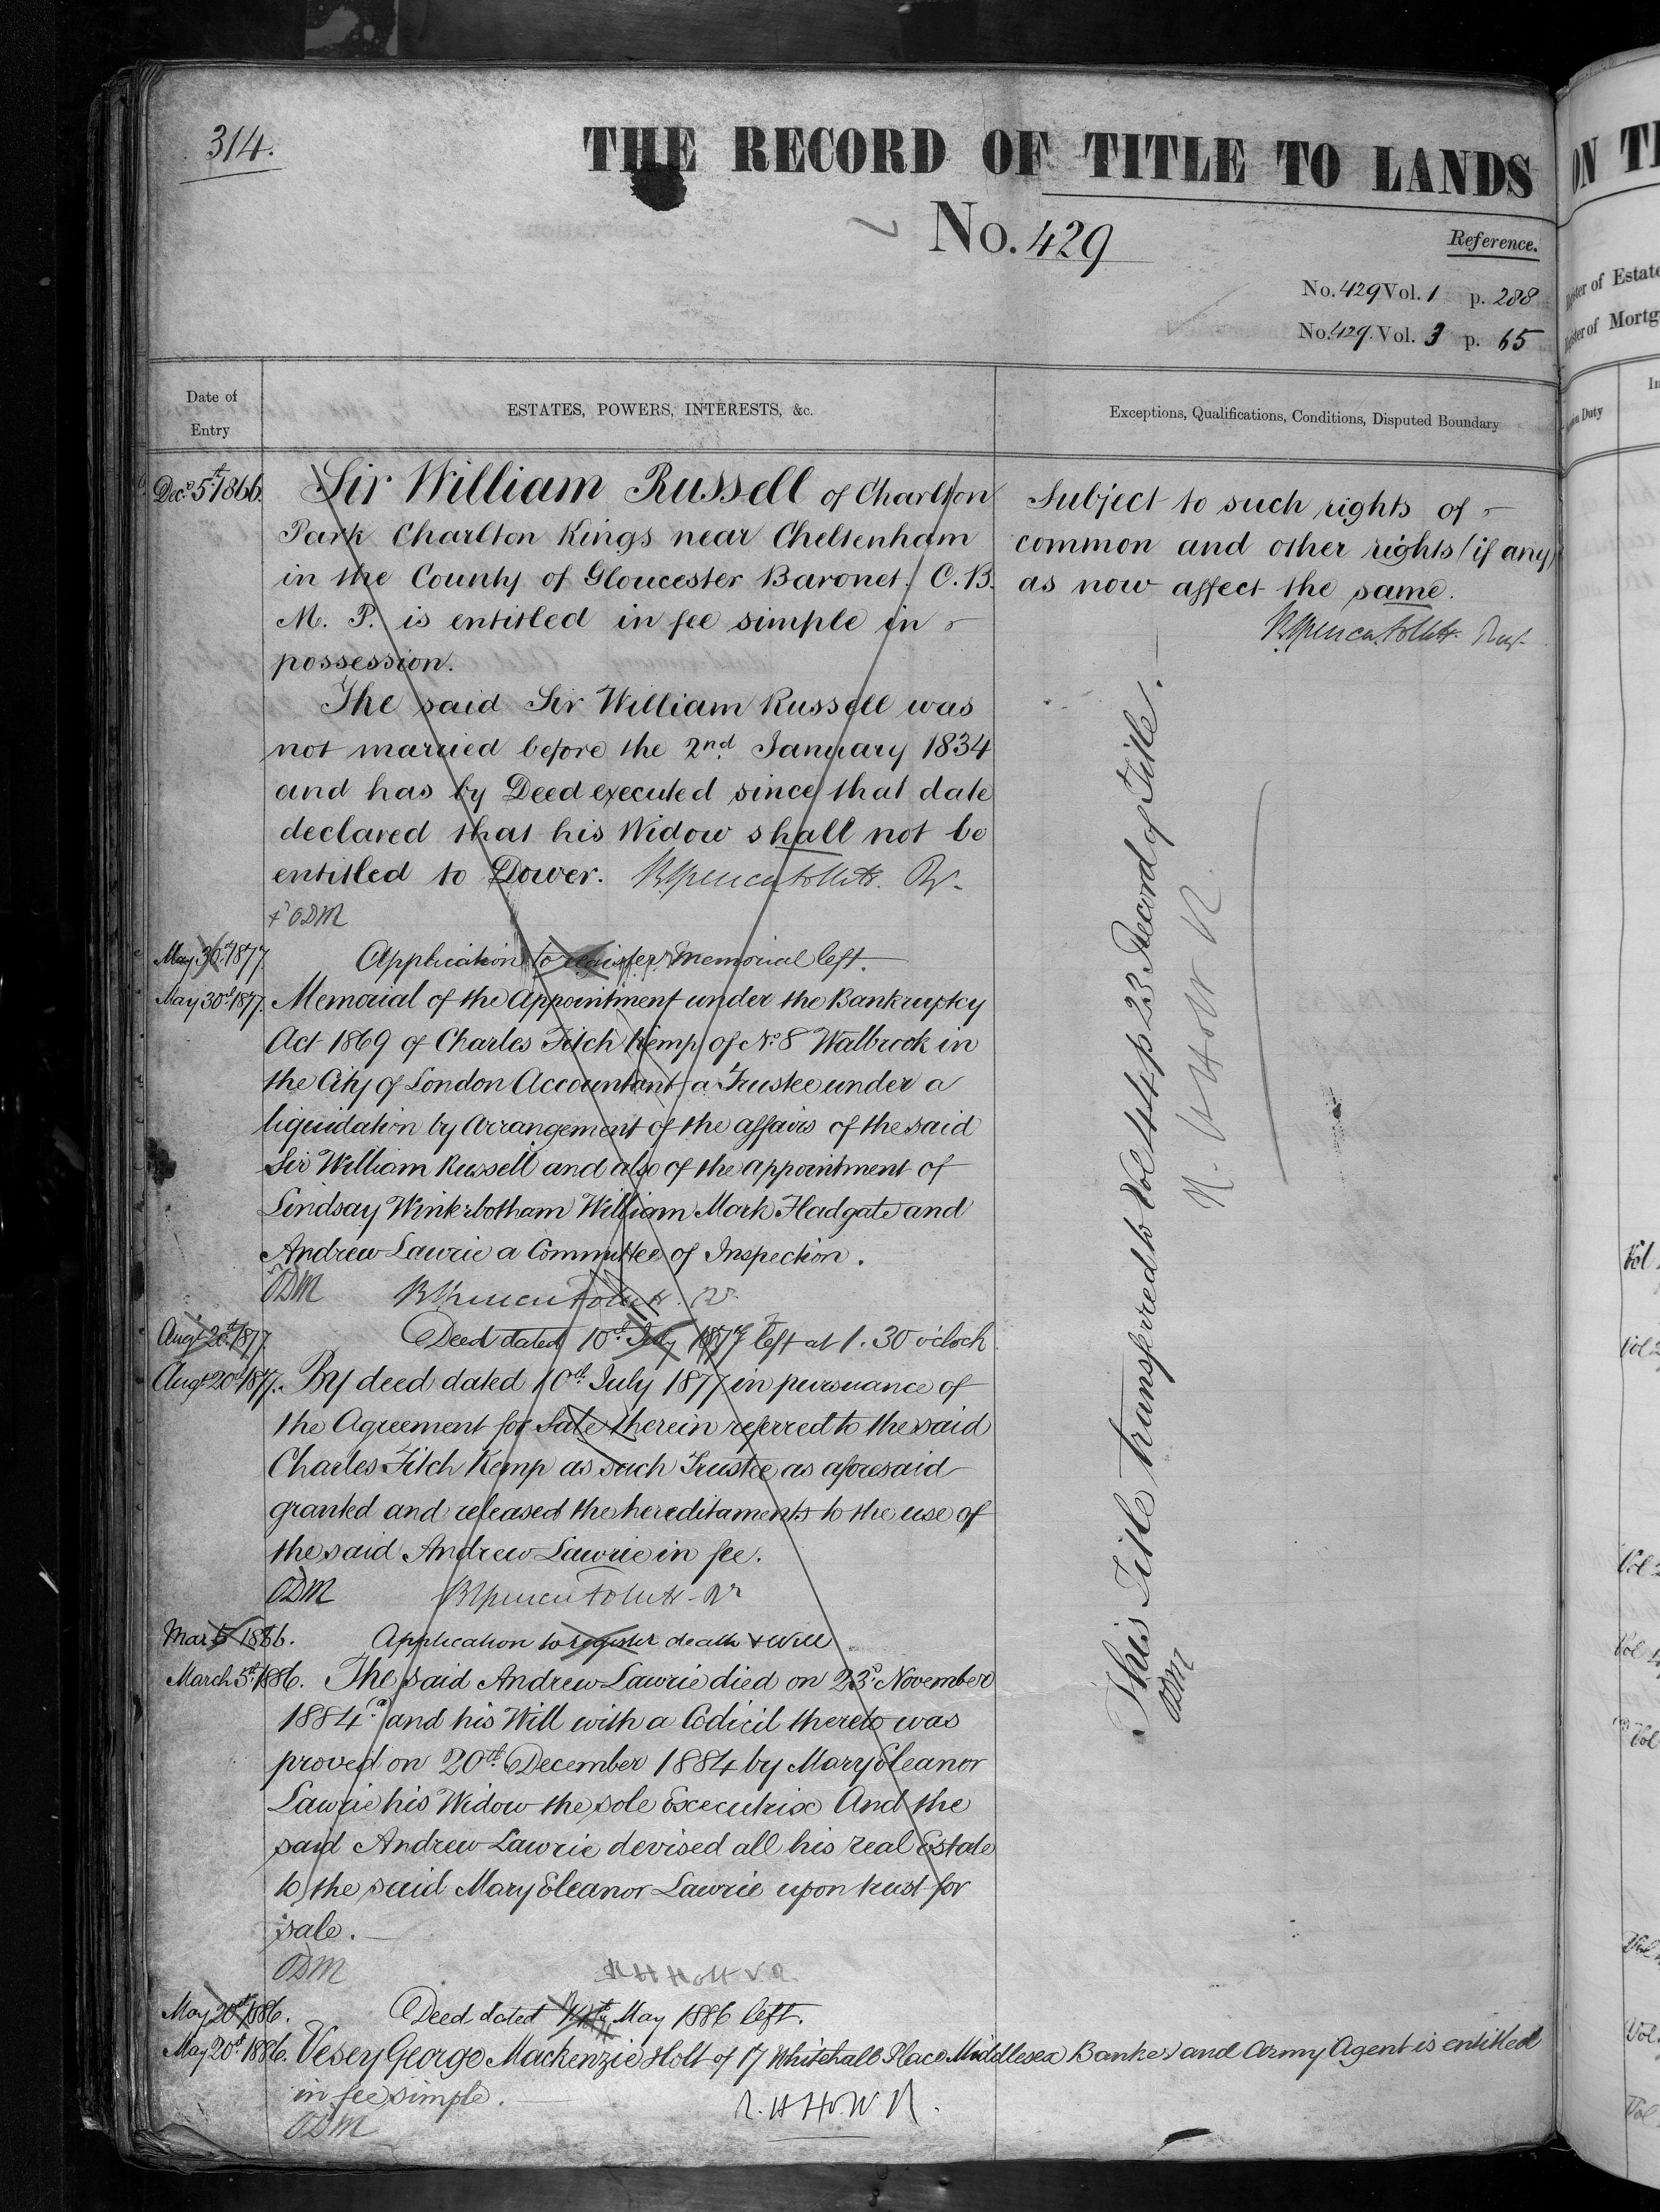 314.
THE RECORD OF TITLE TO LANDS
No. 429
Reference.
No. 429 Vol. 1 p. 288
No. 429. Vol. 3 p. 65
Date of Entry
ESTATES, POWERS, INTERESTS, &c.
Exceptions, Qualifications, Conditions, Disputed Boundary
Dec.r 5th 1866. Sir William Russell of Charlton
Park Charlton Kings near Cheltenham
in the County of Gloucester Baronet. C.B.
M. P. is entitled in fee simple in
possession.
The said Sir William Russell was
not married before the 2nd January 1834
and has by Deed executed since that date
declared that his Widow shall not be
entitled to Dower.
ODM
May 30th 1877. Application to register Memorial left.
May 30th 1877. Memorial of the Appointment under the Bankruptcy
Act 1869 of Charles Fitch Kemp of No. 8 Walbrook in
the City of London Accountant a Trustee under a
liquidation by Arrangement of the affairs of the said
Sir William Russell and also of the appointment of
Lindsay Winterbotham William Mark Fladgate and
Andrew Lawrie a Committee of Inspection.
ODM
Augt 20th 1877 Deed dated 10th July 1877 left at 1.30 o'clock
Augt 20th 1877. By deed dated 10th July 1877 in pursuance of
the Agreement for Sale therein referred to the said
Charles Fitch Kemp as such Trustee as aforesaid
granted and released the hereditaments to the use of
the said Andrew Lawrie in fee.
ODM
Mar 5 1886. Application to register death & Will
March 5th 1886. The said Andrew Lawrie died on 23d November
1884 (a) and his Will with a Codicil thereto was
proved on 20th December 1884 by Mary Eleanor
Lawrie his Widow the sole Executrix And the
said Andrew Lawrie devised all his real Estate
to the said Mary Eleanor Lawrie upon trust for
sale.
ODM R H Holt V.R.
May 20th 1886. Deed dated May 1886 left.
May 20th 1886. Vesey George Mackenzie Holt of 17 Whitehall Place Middlesex Banker and Army Agent is entitled
in fee simple.
ODM R. H Holt R.
Subject to such rights of
common and other rights (if any)
as now affect the same.
This Title transferred to Vol 44 p 23 Record of Title.
ODM R. H Holt R.
ON TI
of Estate
of Mortg
Duty
Vol
Vol 2
Vol 2
Vol 4
Vol
Vol
Vol
Vol